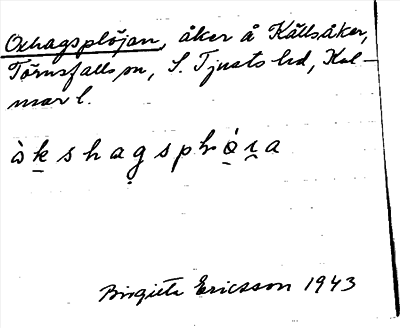 Oxhagsplöjan, åker å Källsåker,
Törnsfalls sn, S. Tjusts hd, Kal-
mar l.
Birgitta Ericsson 1943